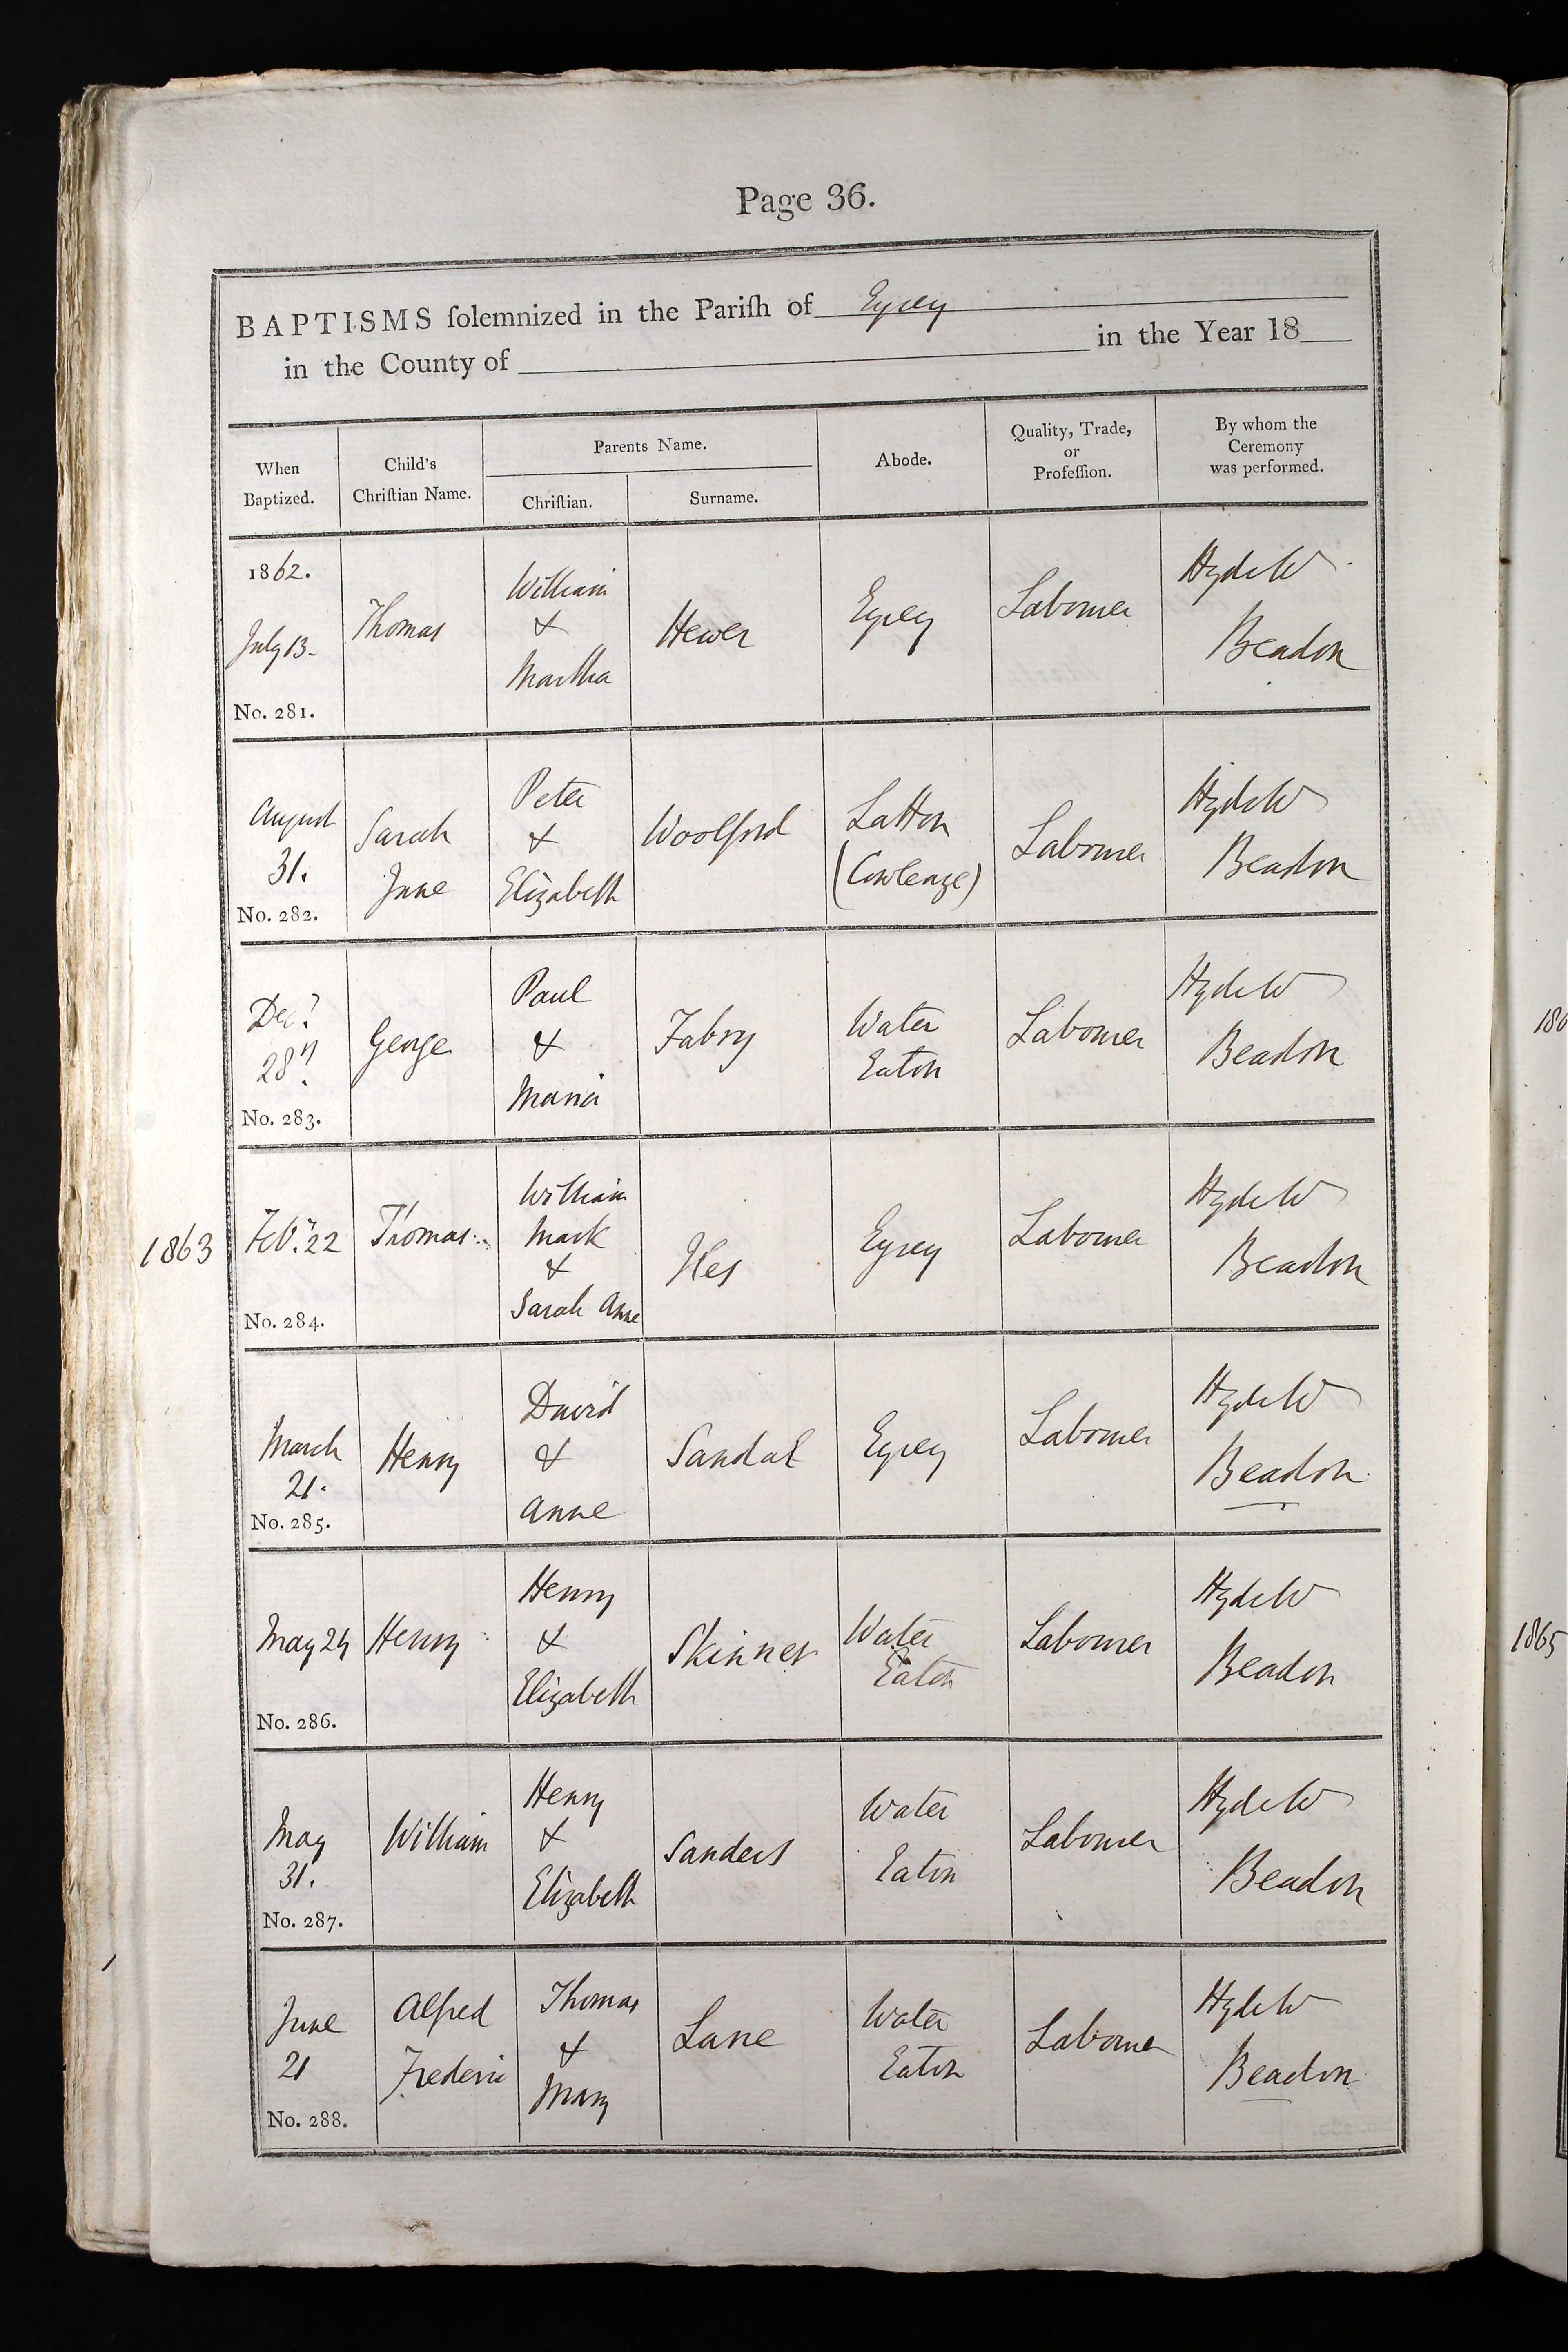 Page 36.
BAPTISMS ſolemnized in the Pariſh of Eysey
in the County of in the Year 18
When Baptized.
Child's Chriſtian Name.
Parents Name.
Chriſtian.
Surname.
Abode.
Quality, Trade, or Profeſſion.
By whom the Ceremony was performed.
1862.
July 13.
No. 281.
Thomas
William
&
Martha
Hewer
Eysey
Labourer
Hyde W
Beadon
August
31.
No. 282.
Sarah
Jane
Peter
&
Elizabeth
Woolford
Latton
(Cowleaze)
Labourer
Hyde W
Beadon
Decr
28th
No. 283.
George
Paul
&
Maria
Fabry
Water
Eaton
Labourer
Hyde W
Beadon
1863
Feby 22
No. 284.
Thomas
William
Mark
&
Sarah Anne
Iles
Eysey
Labourer
Hyde W
Beadon
March
21.
No. 285.
Henry
David
&
Anne
Sandal
Eysey
Labourer
Hyde W
Beadon
May 24
No. 286.
Henry
Henry
&
Elizabeth
Skinner
Water
Eaton
Labourer
Hyde W
Beadon
May
31.
No. 287.
William
Henry
&
Elizabeth
Sanders
Water
Eaton
Labourer
Hyde W
Beadon
June
21
No. 288.
Alfred
Frederic
Thomas
&
Mary
Lane
Water
Eaton
Labourer
Hyde W
Beadon
186
1865